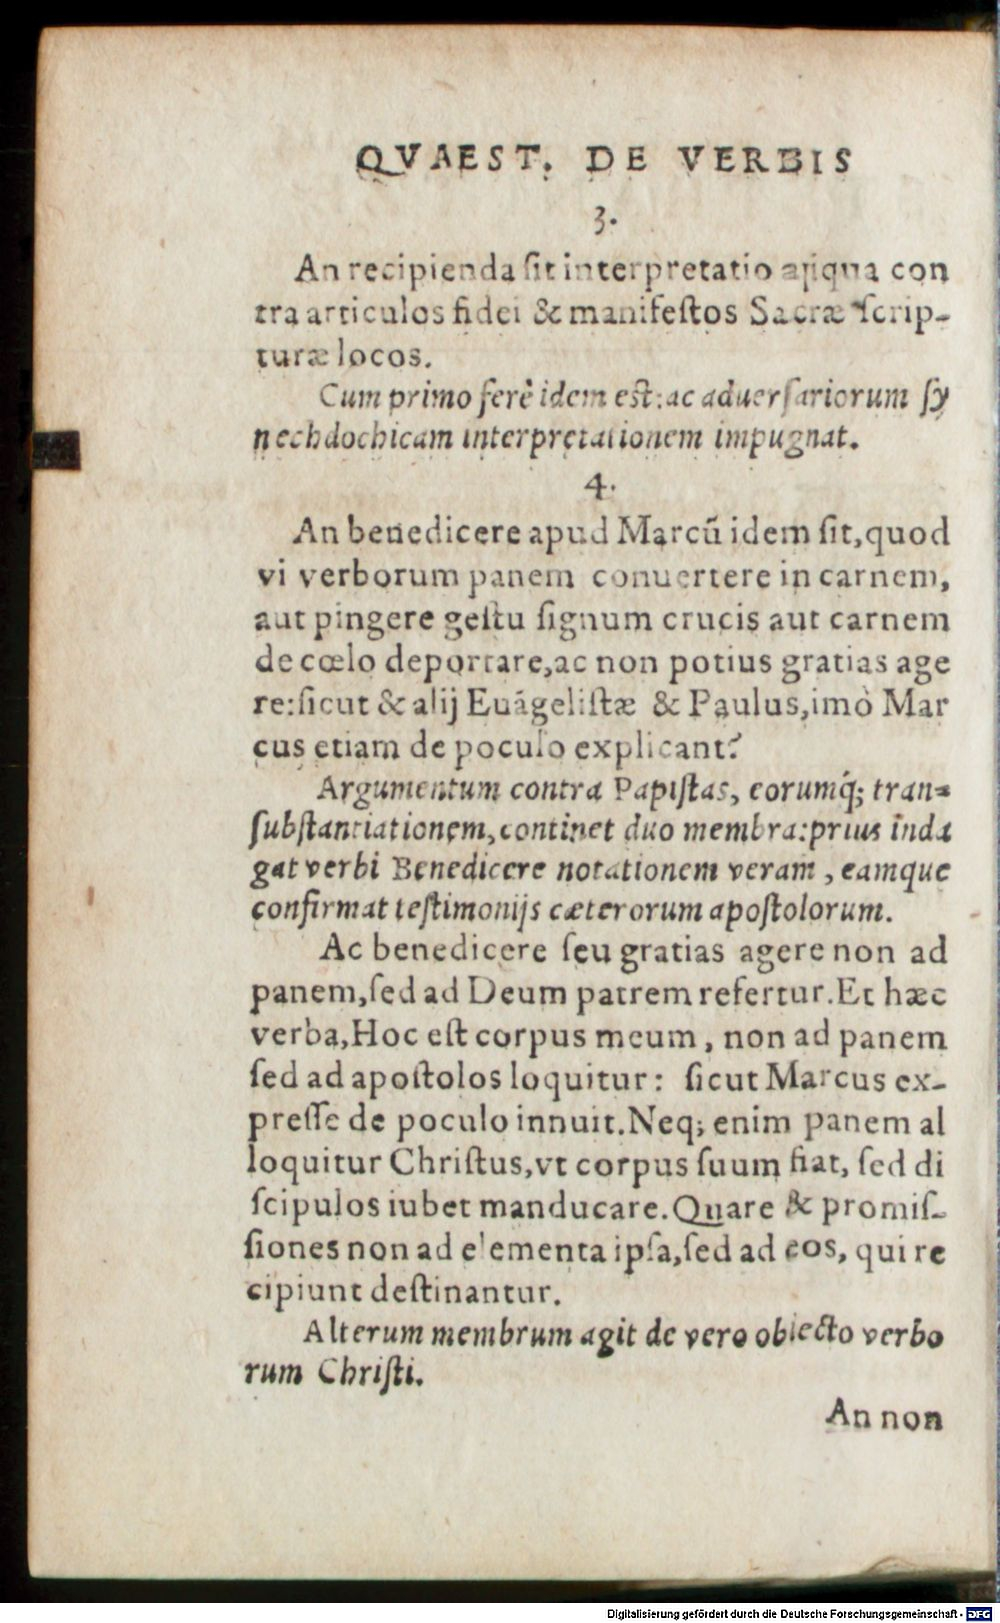 QVAEST. DE VERBIS
3.
An recipienda ſit interpretatio aliqua con
tra articulos fidei & manifeſtos Sacræ ſcrip-
turæ locos.
Cum primo ferè idem eſt: ac aduerſariorum ſy
nechdochicam interpretationem impugnat.
4.
An benedicere apud Marcũ idem ſit, quod
vi verborum panem conuertere in carnem,
aut pingere geſtu ſignum crucis aut carnem
de cœlo deportare, ac non potius gratias age
re: ſicut & alij Euãgeliſtæ & Paulus, imò Mar
cus etiam de poculo explicant?
Argumentum contra Papiſtas, eorumq́; tran-
ſubſtantiationem, continet duo membra: prius inda
gat verbi Benedicere notationem veram, eamque
confirmat teſtimonijs cæterorum apoſtolorum.
Ac benedicere ſeu gratias agere non ad
panem, ſed ad Deum patrem refertur. Et hæc
verba, Hoc eſt corpus meum, non ad panem
ſed ad apoſtolos loquitur: ſicut Marcus ex-
preſſe de poculo innuit. Neq; enim panem al
loquitur Chriſtus, vt corpus ſuum fiat, ſed di
ſcipulos iubet manducare. Quare & promiſ-
ſiones non ad elementa ipſa, ſed ad eos, qui re
cipiunt deſtinantur.
Alterum membrum agit de vero obiecto verbo
rum Chriſti.
An non
Digitalisierung gefördert durch die Deutsche Forschungsgemeinschaft - DFG